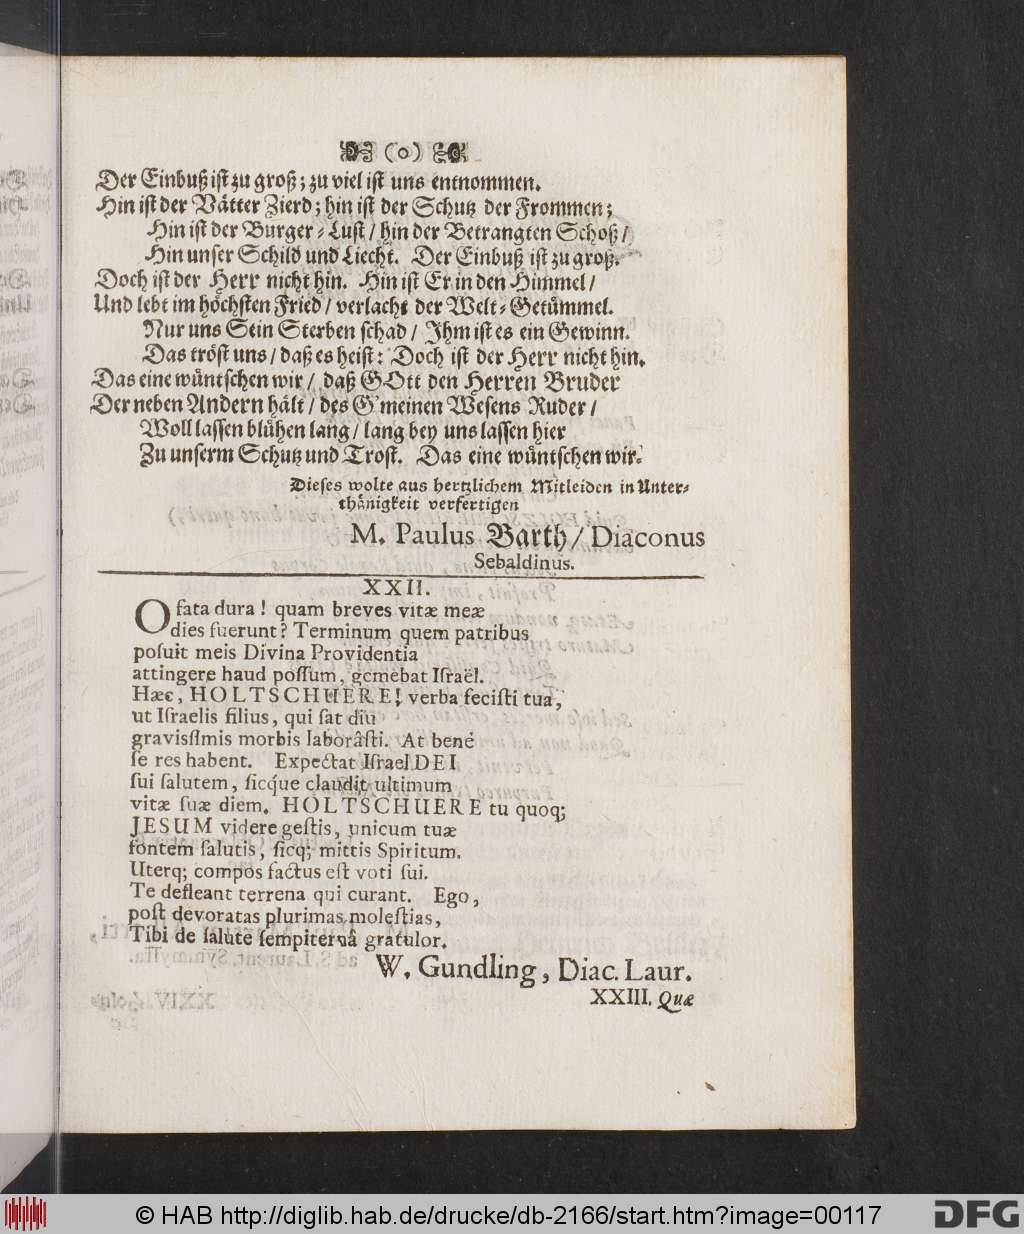 (o)
Der Einbuß ist zu groß; zu viel ist uns entnommen.
Hin ist der Vätter Zierd; hin ist der Schutz der Frommen;
Hin ist der Burger-Lust/ hin der Betrangten Schoß/
Hin unser Schild und Liecht. Der Einbuß ist zu groß.
Doch ist der Herr nicht hin. Hin ist Er in den Himmel/
Und lebt im höchsten Fried/ verlacht der Welt-Getümmel.
Nur uns Sein Sterben schad/ Ihm ist es ein Gewinn.
Das tröst uns/ daß es heist: Doch ist der Herr nicht hin.
Das eine wüntschen wir/ daß GOtt den Herren Bruder
Der neben Andern hält/ des G'meinen Wesens Ruder/
Woll lassen blühen lang/ lang bey uns lassen hier
Zu unserm Schutz und Trost. Das eine wüntschen wir.
Dieses wolte aus hertzlichem Mitleiden in Unter-
thänigkeit verfertigen
M. Paulus Barth/ Diaconus
Sebaldinus.
XXII.
O fata dura! quam breves vitæ meæ
dies fuerunt? Terminum quem patribus
posuit meis Divina Providentia
attingere haud possum, gemebat Israël.
Hæc, HOLTSCHUERE! verba fecisti tua,
ut Israelis filius, qui sat diu
gravissimis morbis laborâsti. At benè
se res habent. Expectat Israel DEI
sui salutem, sicq́ue claudit ultimum
vitæ suæ diem. HOLTSCHUERE tu quoq;
JESUM videre gestis, unicum tuæ
fontem salutis, sicq; mittis Spiritum.
Uterq; compos factus est voti sui.
Te defleant terrena qui curant. Ego,
post devoratas plurimas molestias,
Tibi de salute sempiternâ gratulor.
W. Gundling, Diac. Laur.
XXIII. Quæ
© HAB http://diglib.hab.de/drucke/db-2166/start.htm?image=00117
DFG